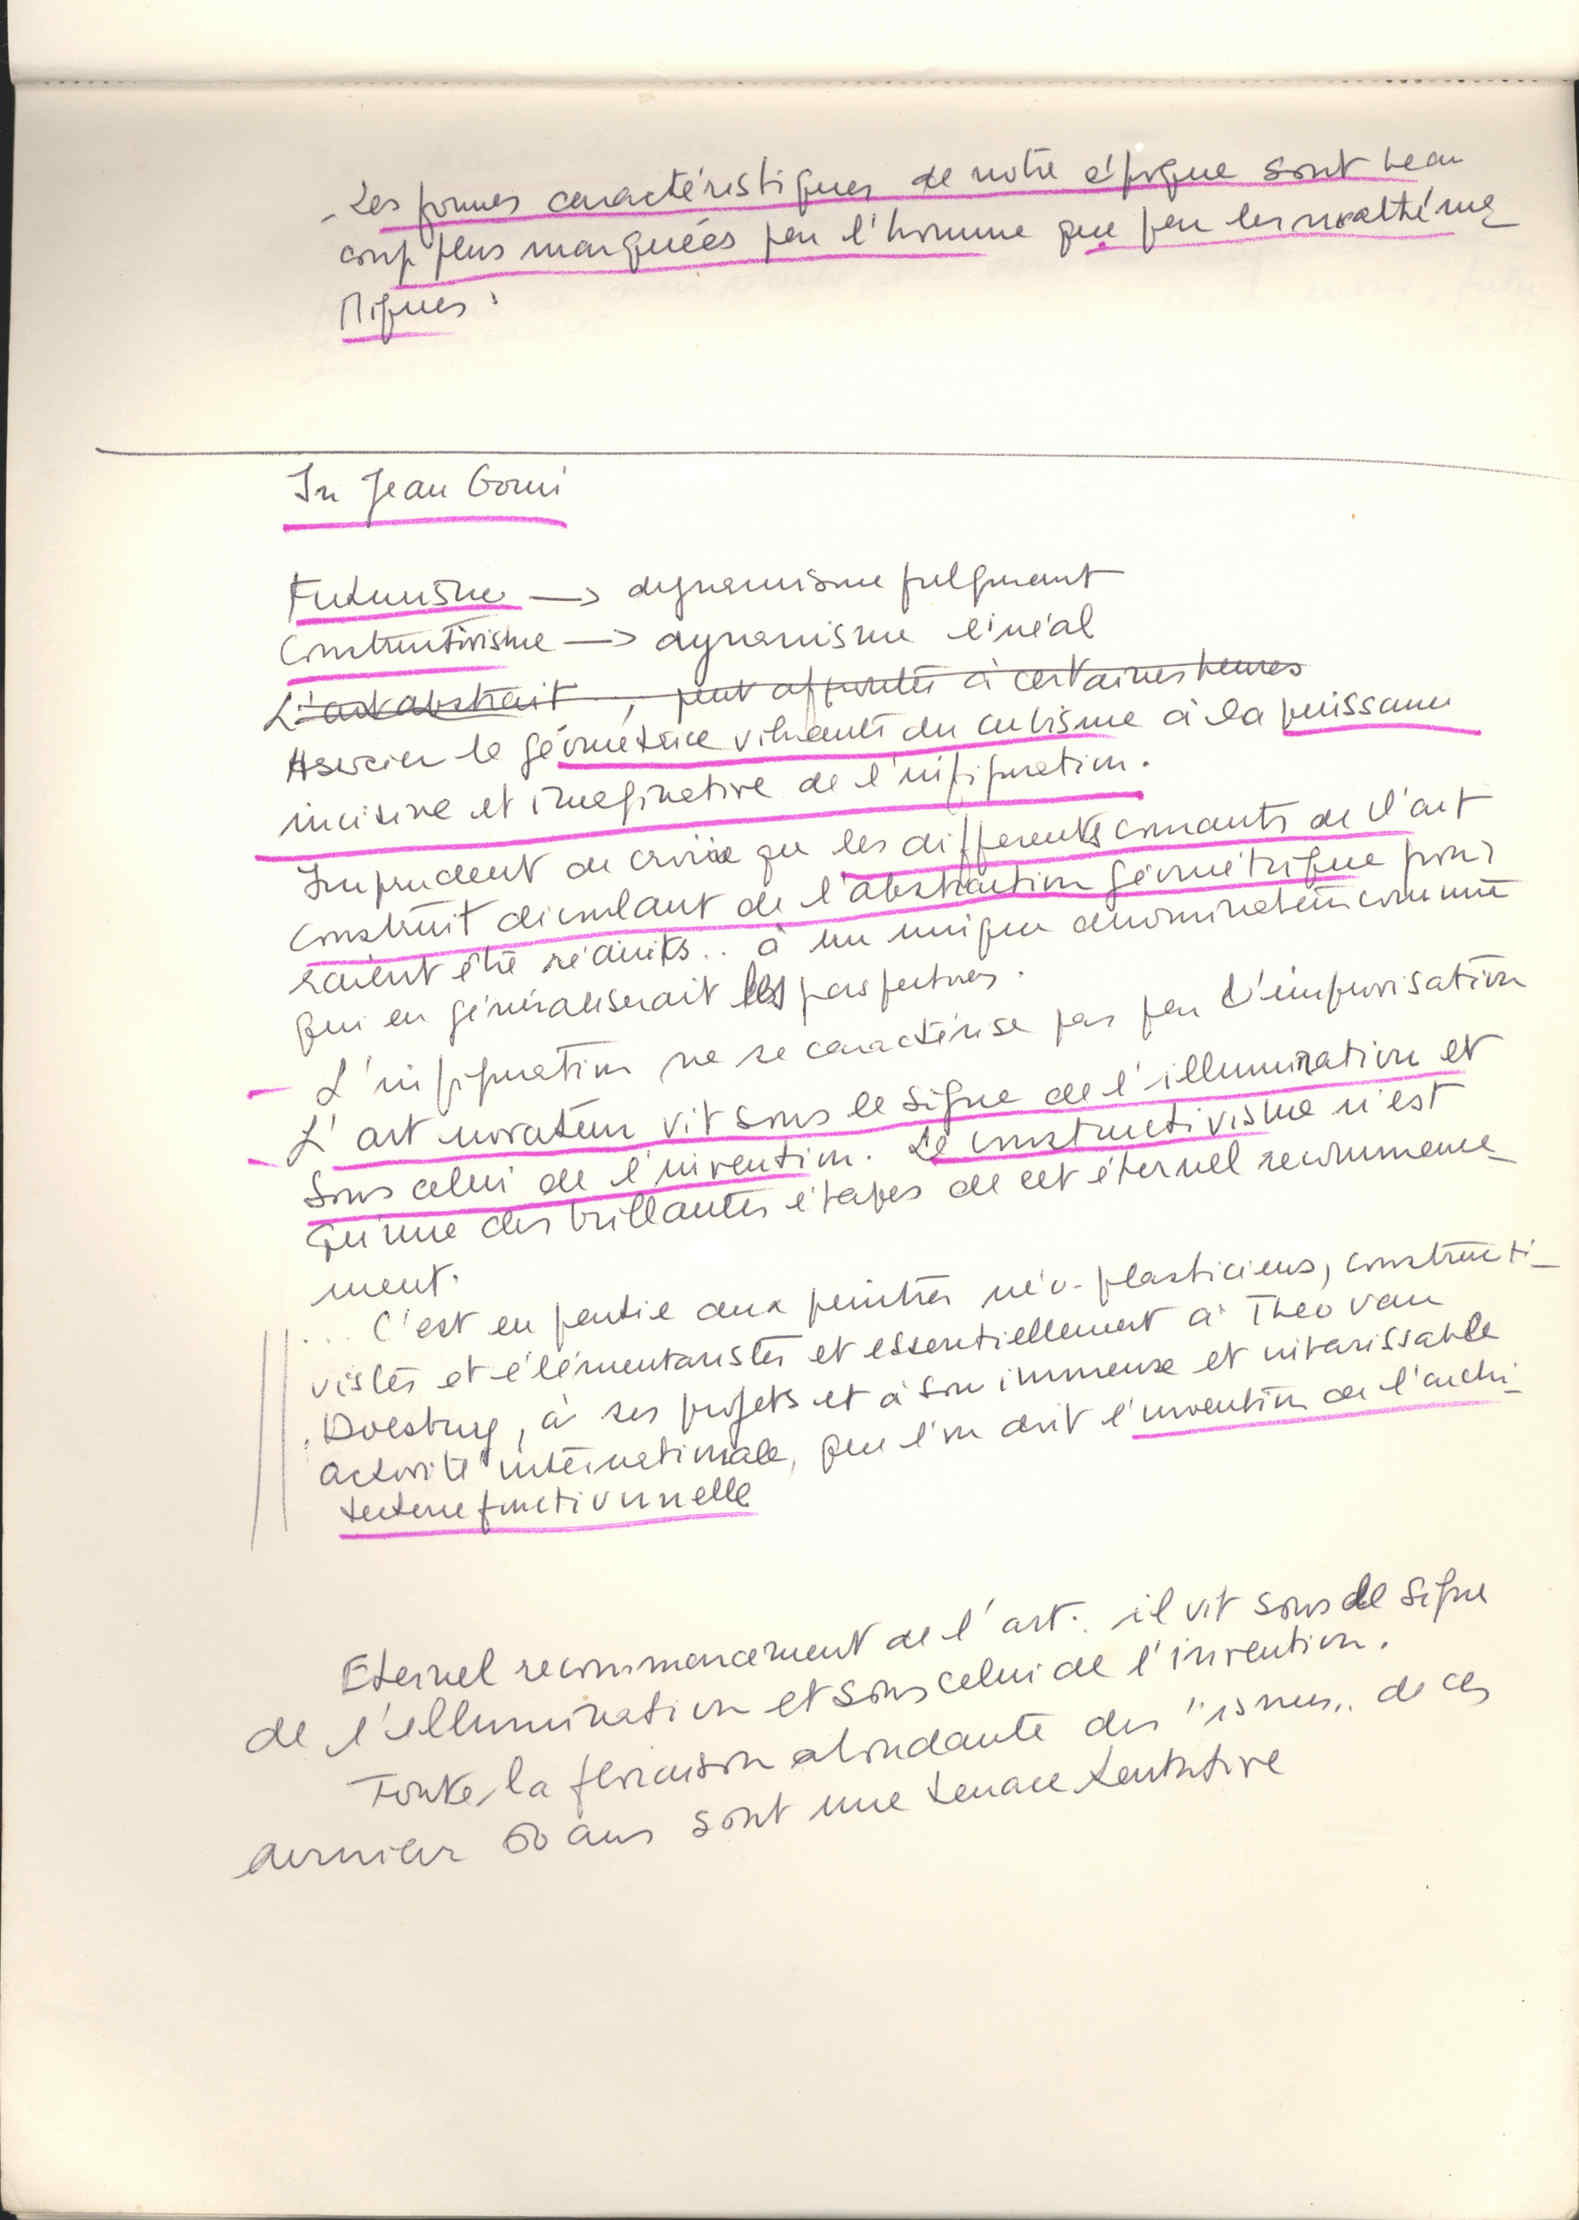 - Les formes caractéristiques de notre époque sont beau
coup plus marquées par l'homme que par les mathéma
tiques.
In Jean Gorin
Futurisme → dynamisme fulgurant
Constructivisme → dynamisme linéal
L'art abstrait , peut apporter à certaines heures
Associer le géométrie vibrante du cubisme à la puissance
incisive et imaginative de l'infiguration.
Imprudent de croire que les différents courants de l'art
construit découlant de l'abstraction géométrique pour
raient être réduits.. à un unique dénominateur commun
qui en généraliserait les perspectives.
- L'infiguration ne se caractérise pas par l'improvisation
- L'art novateur vit sous le signe de l'illumination et
sous celui de l'invention. Le constructivisme n'est
qu'une des brillantes étapes de cet éternel recommence_
ment.
... C'est en partie aux peintres néo-plasticiens, constructi_
vistes et élémentaristes et essentiellement à Theo van
Doesburg, à ses projets et à son immense et intarissable
activité internationale, que l'on doit l'invention de l'archi_
tecture fonctionnelle
Eternel recommencement de l'art. il vit sous le signe
de l'illumination et sous celui de l'invention.
Toute la floraison abondante des "ismes" de ces
dernier 60 ans sont une tenace tentative